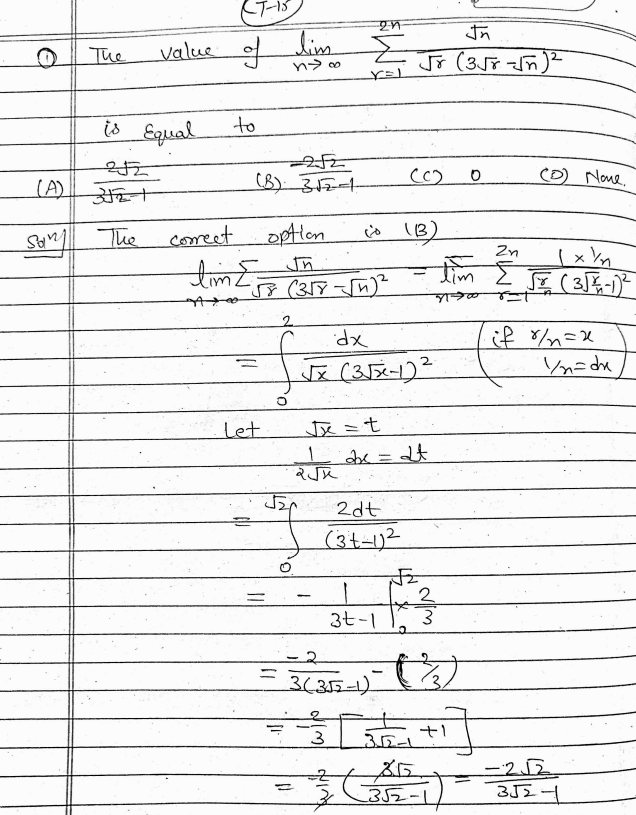 (T-15)
① The value of lim n→∞ 2n Σ r=1 √n / √r (3√r -√n)²
is Equal to
(A) 2√2 / 3√2-1 (B) -2√2 / 3√2-1 (C) 0 (D) None.
Solⁿ The correct option is (B)
lim n→∞ Σ √n / √r (3√r -√n)² = lim n→∞ 2n Σ r=1 1 × 1/n / √r/n (3√r/n -1)²
= ∫ 0 2 dx / √x (3√x-1)² ( if r/n = x
1/n = dx )
Let √x = t
1 / 2√x dx = dt
= ∫ 0 √2 2dt / (3t-1)²
= - 1 / 3t-1 | 0 √2 × 2/3
= -2 / 3(3√2-1) - (2/3)
= -2/3 [ 1 / 3√2-1 +1 ]
= -2/3 ( 3√2 / 3√2-1 ) = -2√2 / 3√2-1